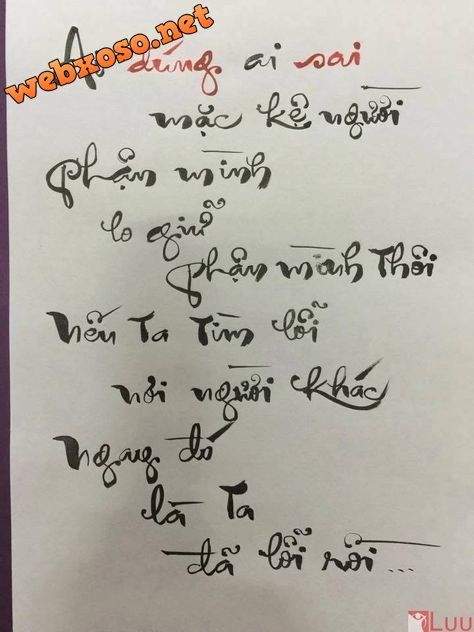 webxoso.net
Ai đúng ai sai
mặc kệ người
Phận mình
lo giữ
phận mình thôi
Nếu Ta Tìm lỗi
nơi người khác
Ngay đó
là Ta
đã lỗi rồi ...
Luu